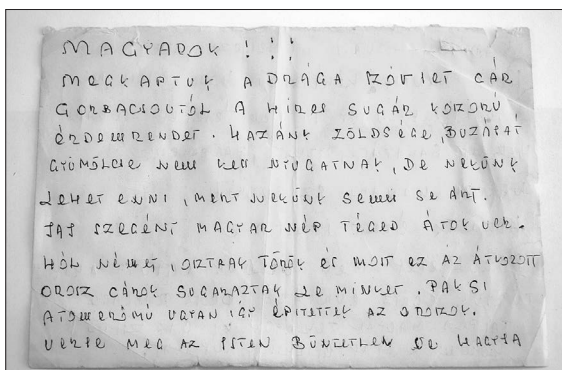 MAGYAROK !!!
MEGKAPTUK A DRÁGA SZOVIET CÁR
GORBACSOVTÓL A HIRES SUGÁR KOSZORÚ
ÉRDEMRENDET. HAZÁNK ZÖLDSÉGE, BUZÁJÁT
GYÜMÖLCSE NEM KELL NYUGATNAK, DE NEKÜNK
LEHET ENNI, MERT NEKÜNK SEMMI SE ÁRT.
JAJ SZEGÉNY MAGYAR NÉP TÉGED ÁTOK VER.
HOL NÉMET, OSZTRÁK TÖRÖK ÉS MOST EZ AZ ÁTKOZOTT
OROSZ CÁROK SUGARAZTAK LE MINKET. PAKSI
ATOMERŐMŰ UGYAN IGY ÉPITETTÉK AZ OROSZOK.
VERJE MEG AZ ISTEN BÜNTETLEN NE HAGYJA